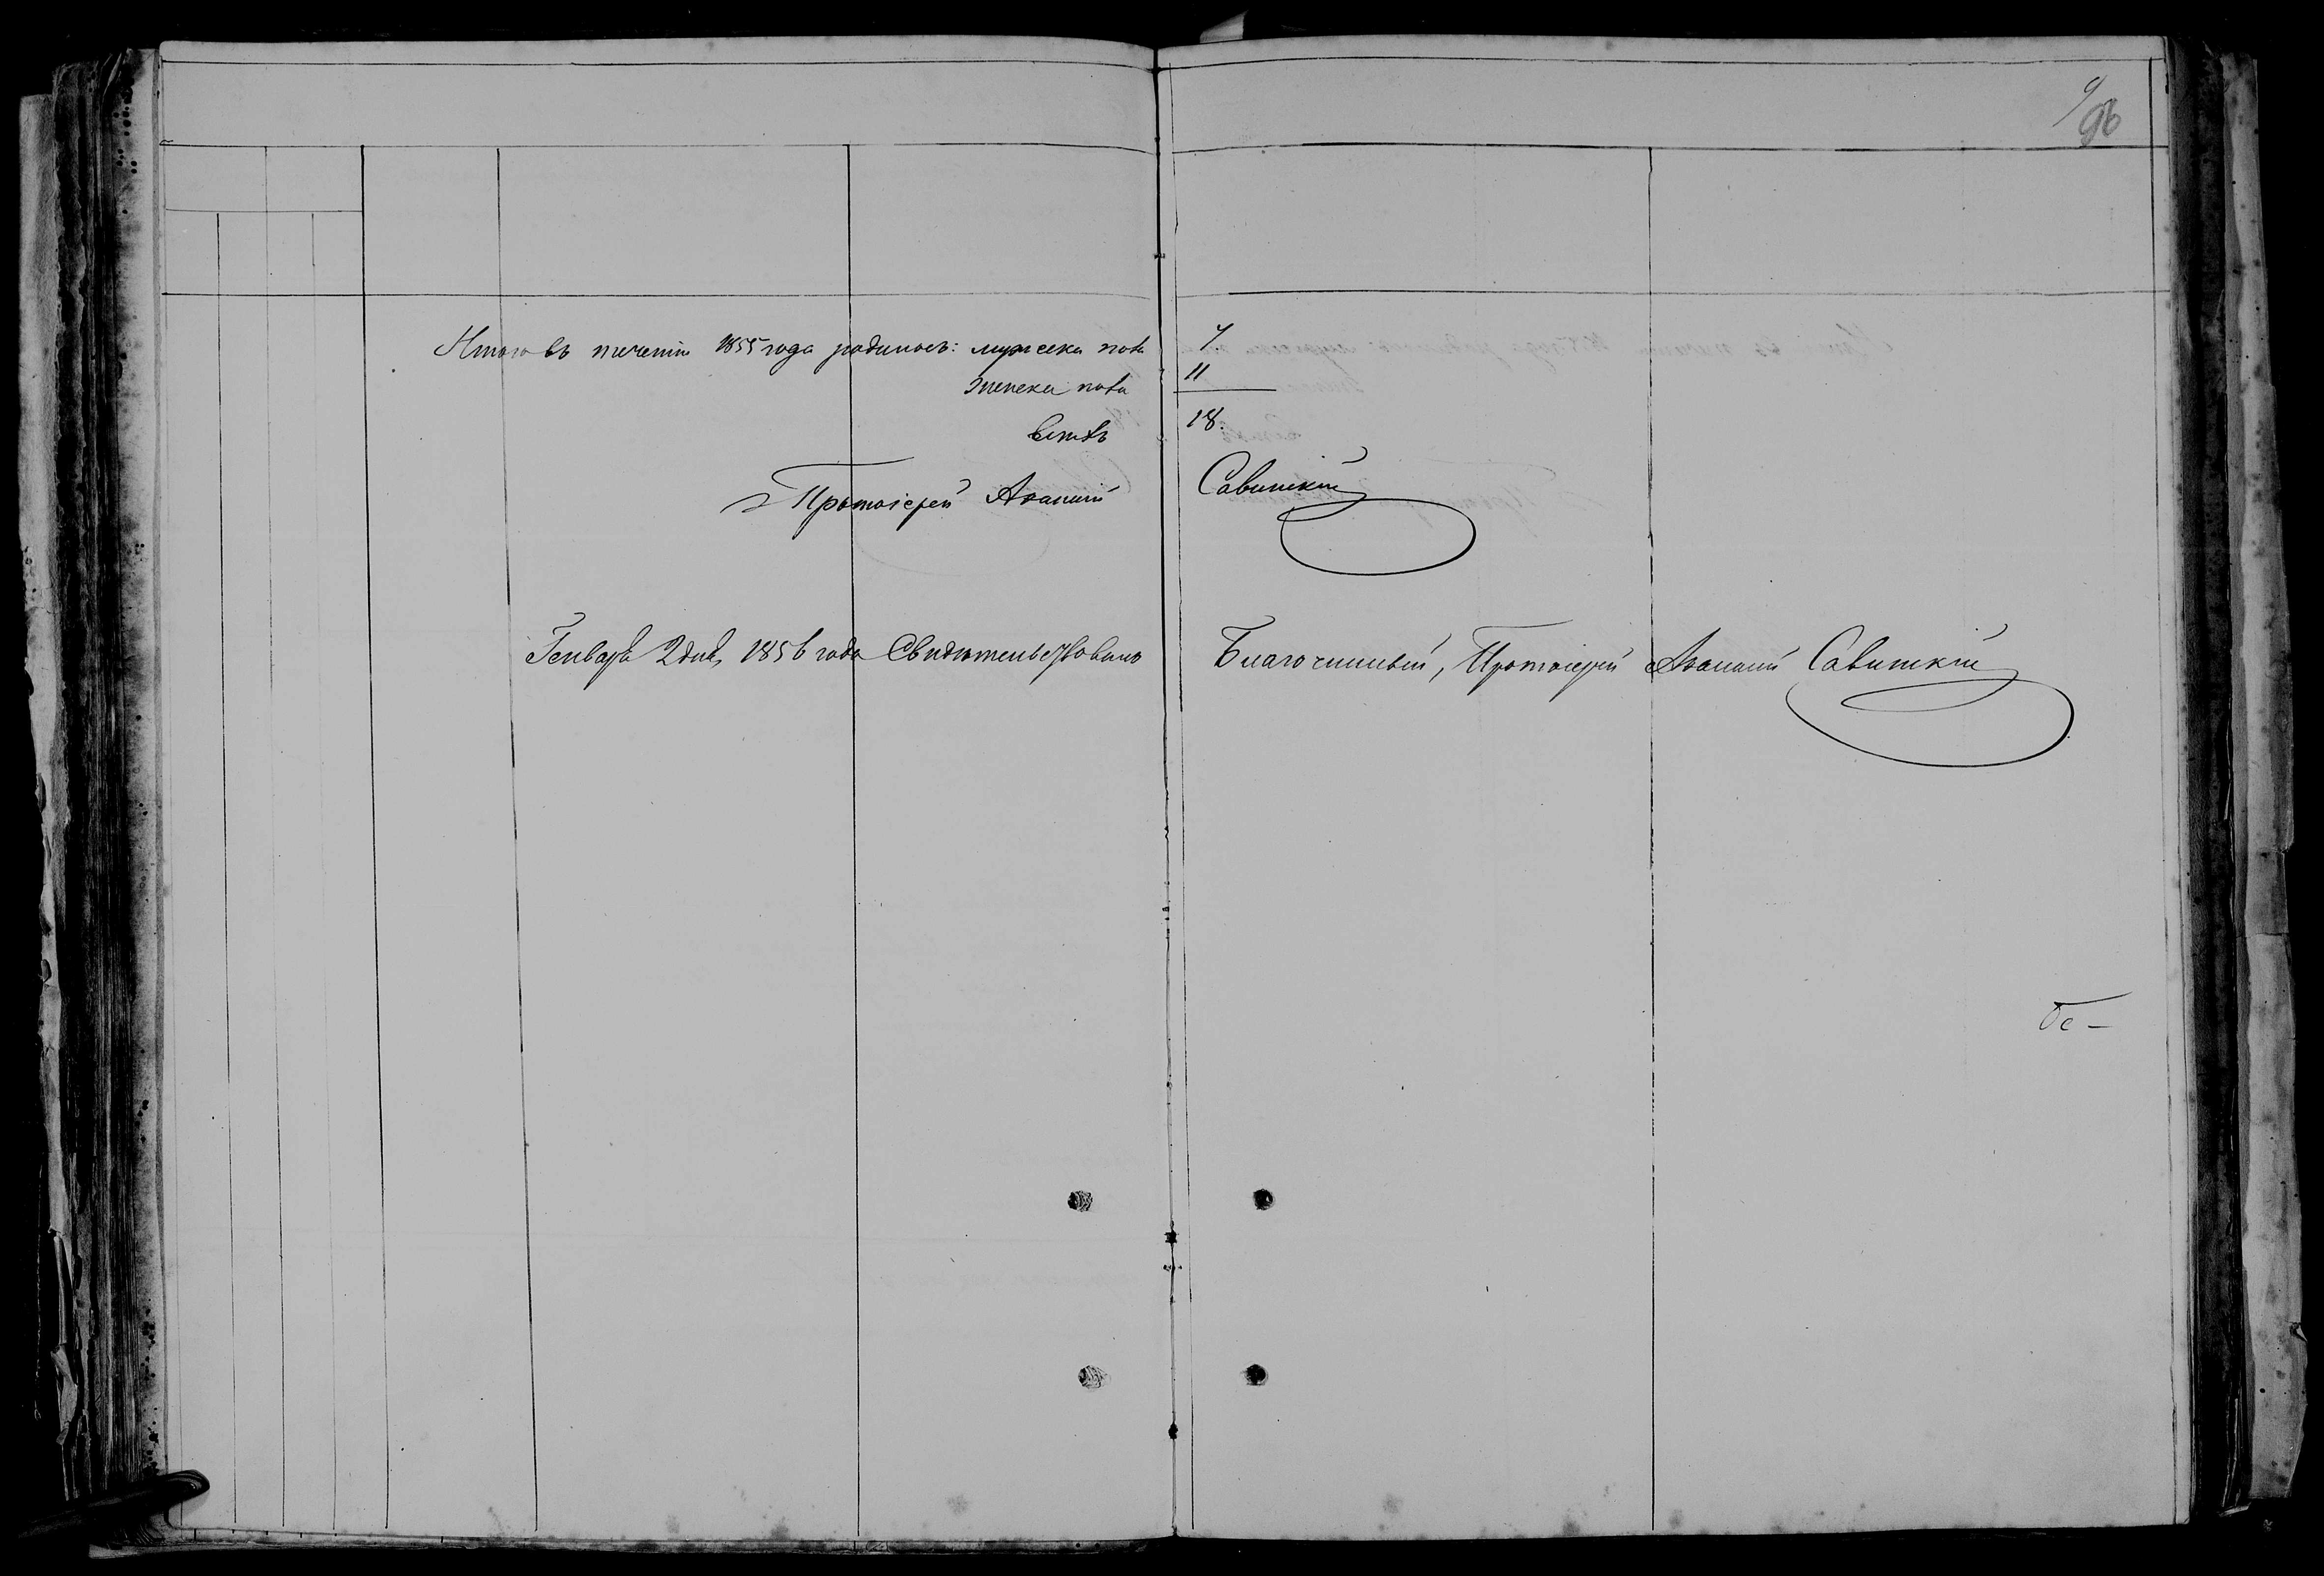 9
96
Итого въ теченіи 1855 года родилось: мужеска пола 7.
женска пола 11
всехъ 18.
Протоіерей Ананій Савитскій
Генваря 2 дня, 1856 года Свидѣтельствовано Благочинный, Протоіерей Ананій Савитскій